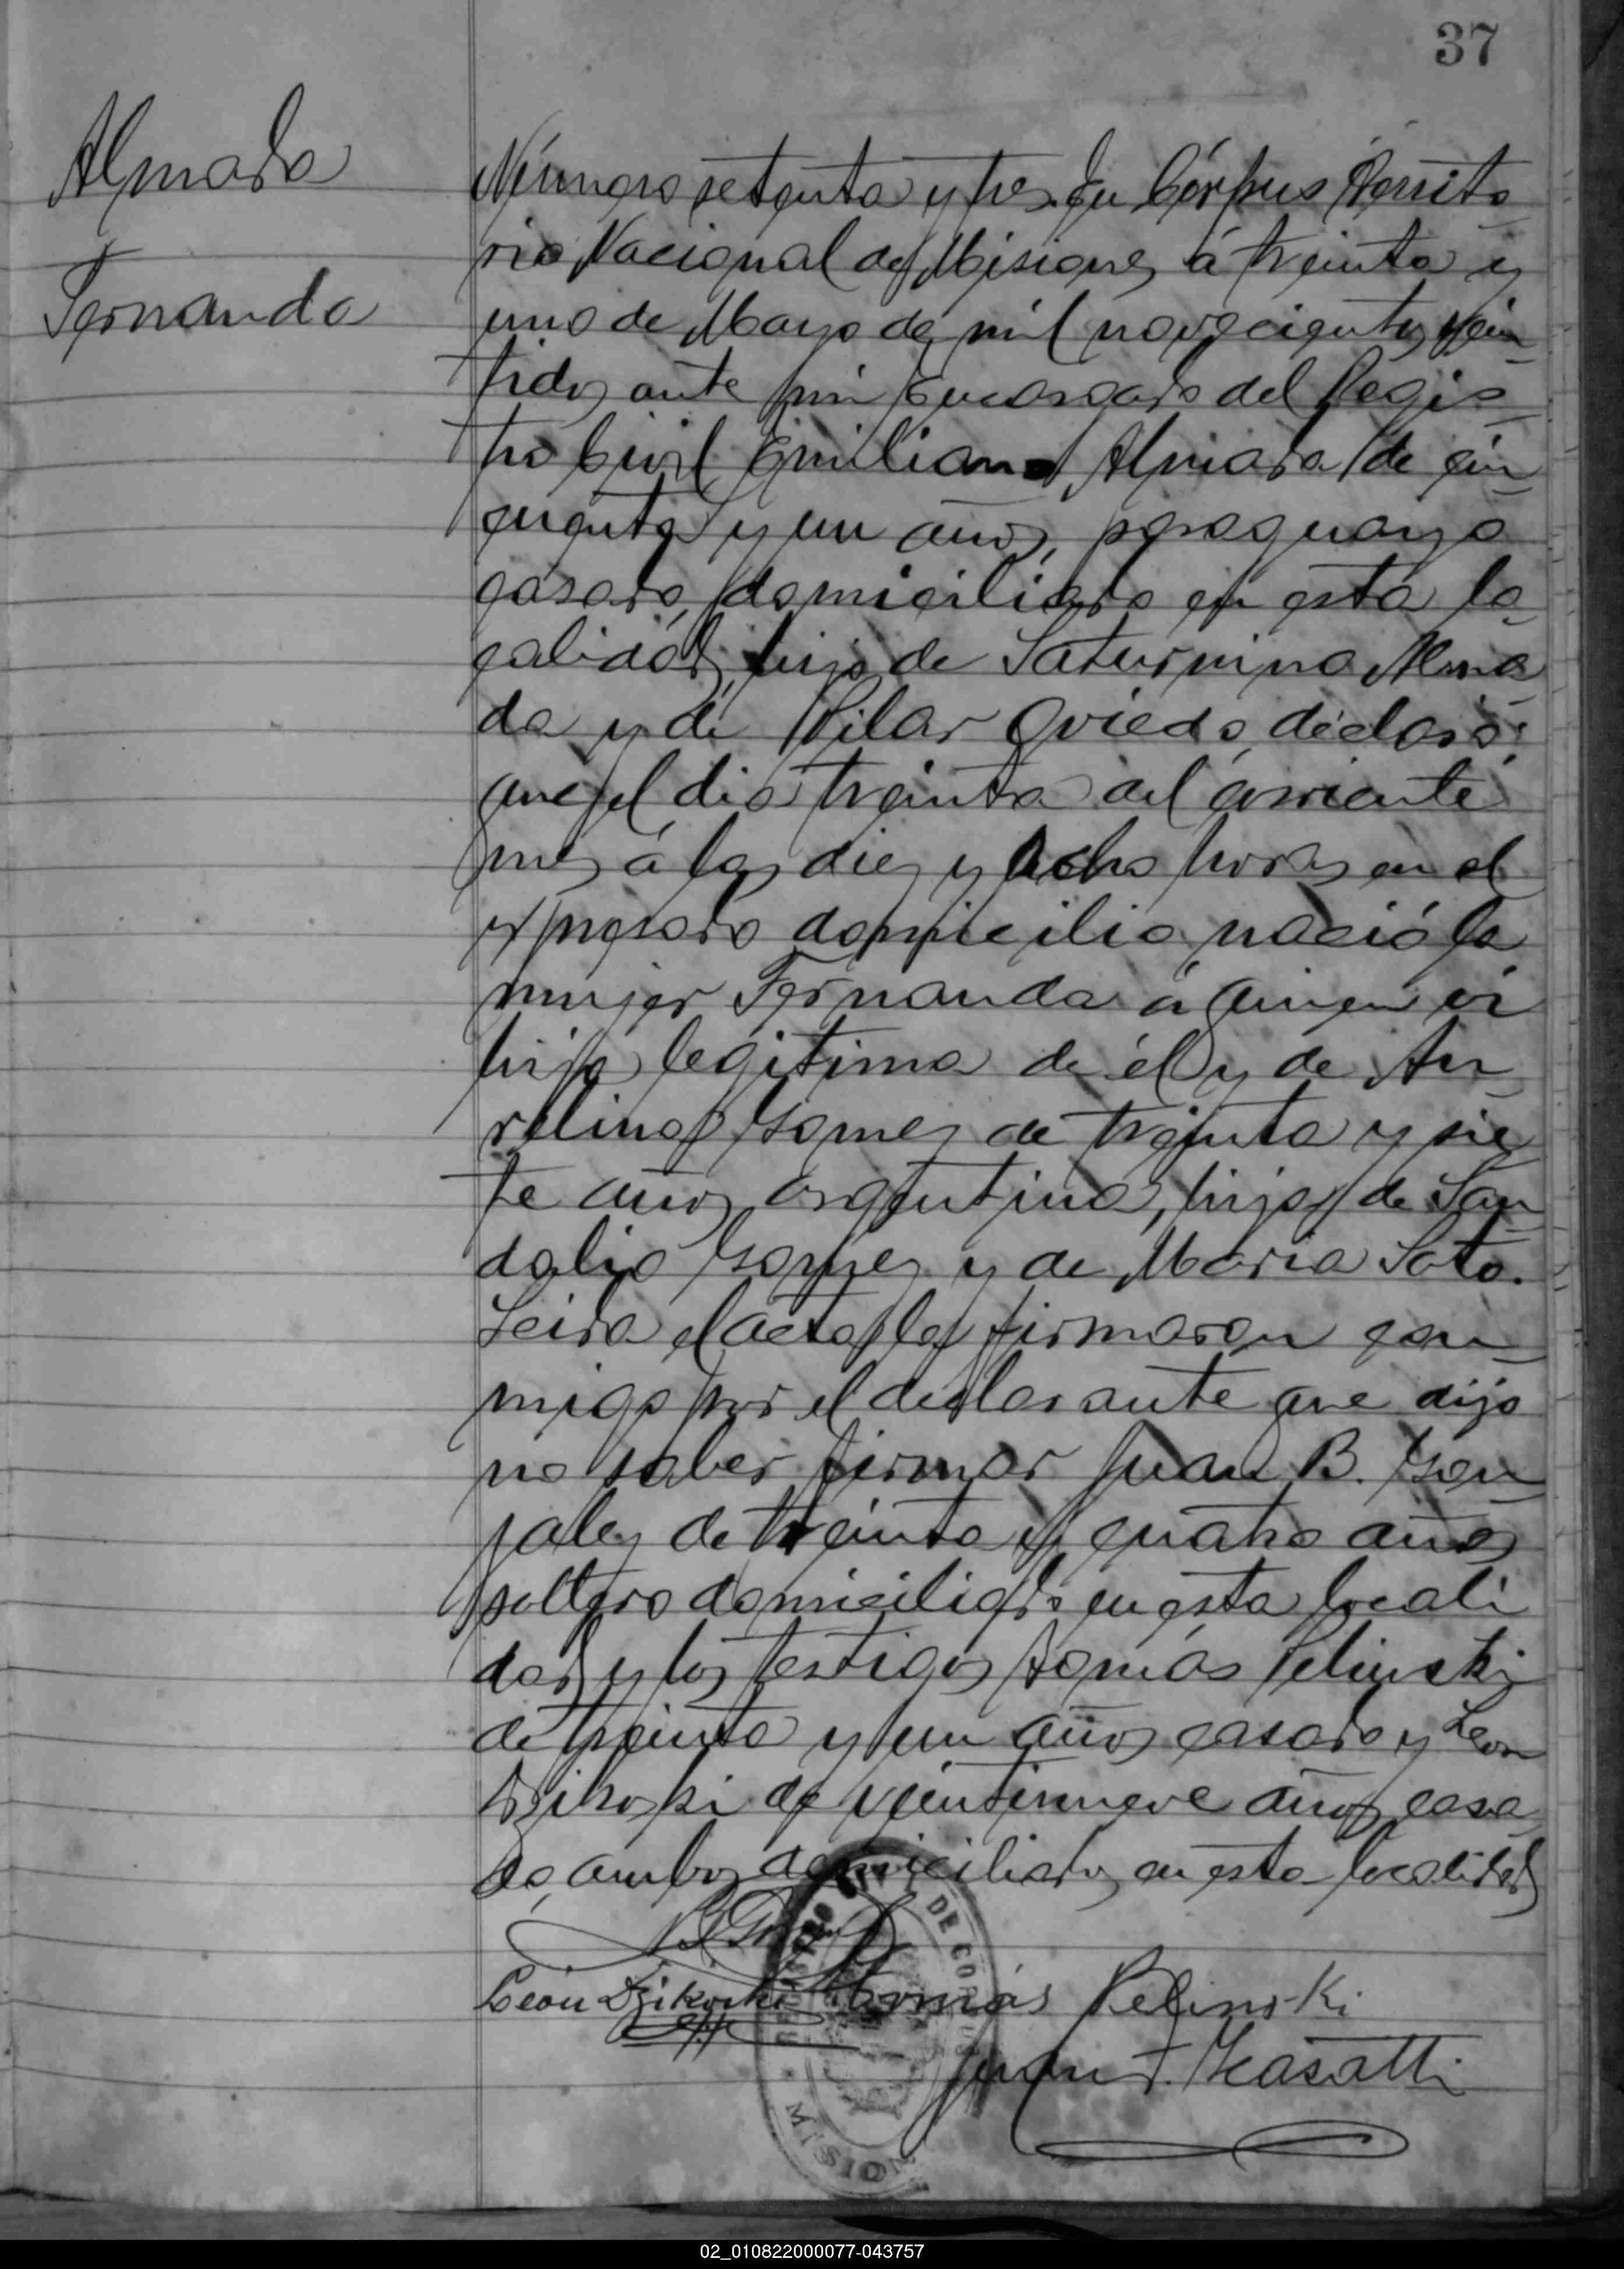 37
Almada
Fernanda
Número setenta y tres. En Córpus Territo
rio Nacional de Misiones á treinta y
uno de Mayo de mil novecientos vein
tidos ante mi Encargado del Regis
tro Civil Emiliano Almada de cin
cuenta y un años, paraguayo
casado, domiciliado en esta lo
calidad, hijo de Saturnino Alma
da y de Pilar Oviedo, declaró:
que el dia treinta del corriente
mes á las diez y ocho horas en el
expresado domicilio nació la
mujer Fernanda á quien ví
hija legitima de él y de Au
relina Gomez de treinta y sie
te años argentina, hija de San
dalio Gomez y de Maria Soto.
Leida el acta la firmaron con
migo por el declarante que dijo
no saber firmar Juan B. Gon
zales de treinta y cuatro años
soltero domiciliado en esta locali
dad y los testigos Tomás Pelinski
de treinta y un años casado y Leon
Dzikoski de veintinueve años casa
do, ambos domiciliados en esta localidad
León Dzikoski Tomás Pelinski
Juan
REGISTRO DE CORPUS
MISIONES
02_010822000077-043757